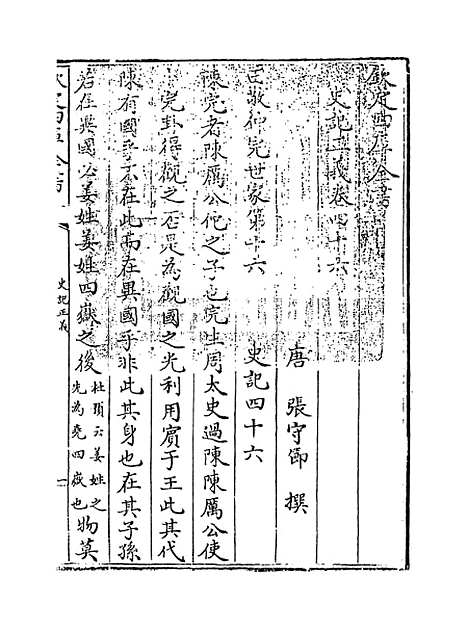 欽定四庫全書
史記正義卷四十六
唐 張守節 撰
田敬仲完世家第十六 史記四十六
陳完者陳厲公佗之子也完生周太史過陳陳厲公使
完卦得觀之否是為觀國之光利用賓于王此其代
陳有國乎不在此而在異國乎非此其身也在其子孫
若在異國必姜姓姜姓四嶽之後杜預云姜姓之先為堯四嶽也物莫
欽定四庫全書
史記正義
一